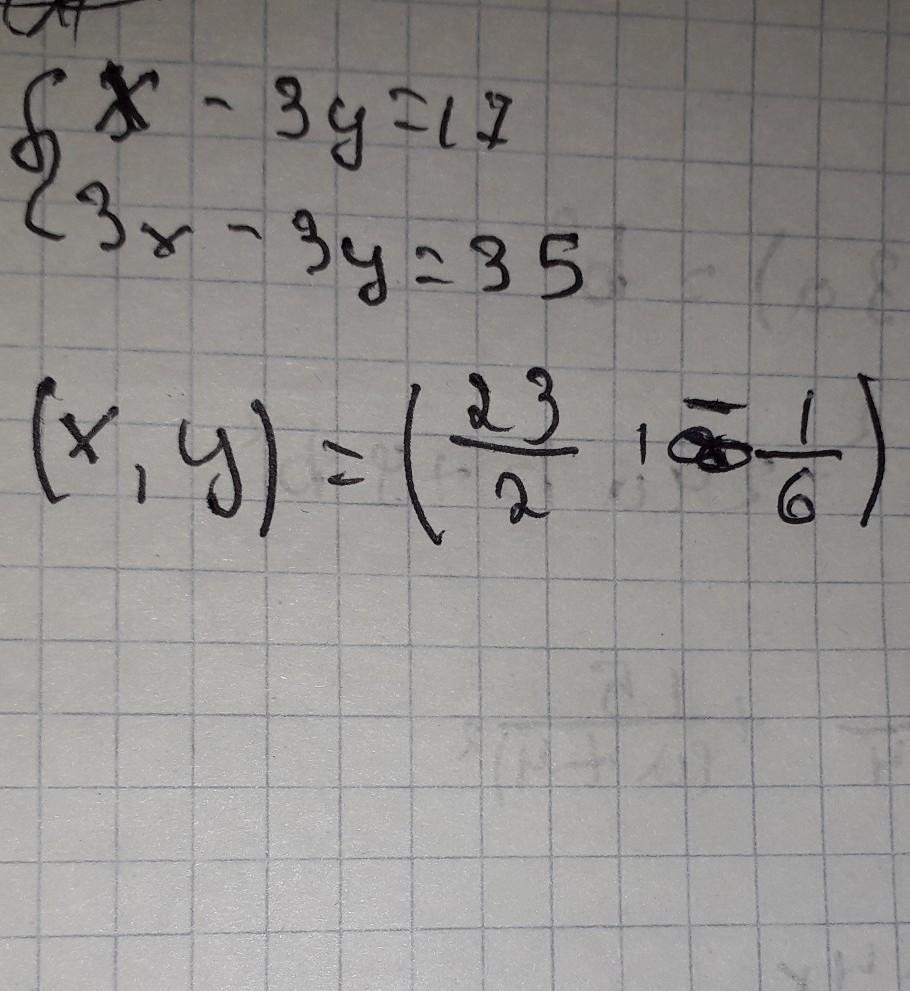 { x - 3y = 17
3x - 3y = 35
(x, y) = (23/2, -1/6)